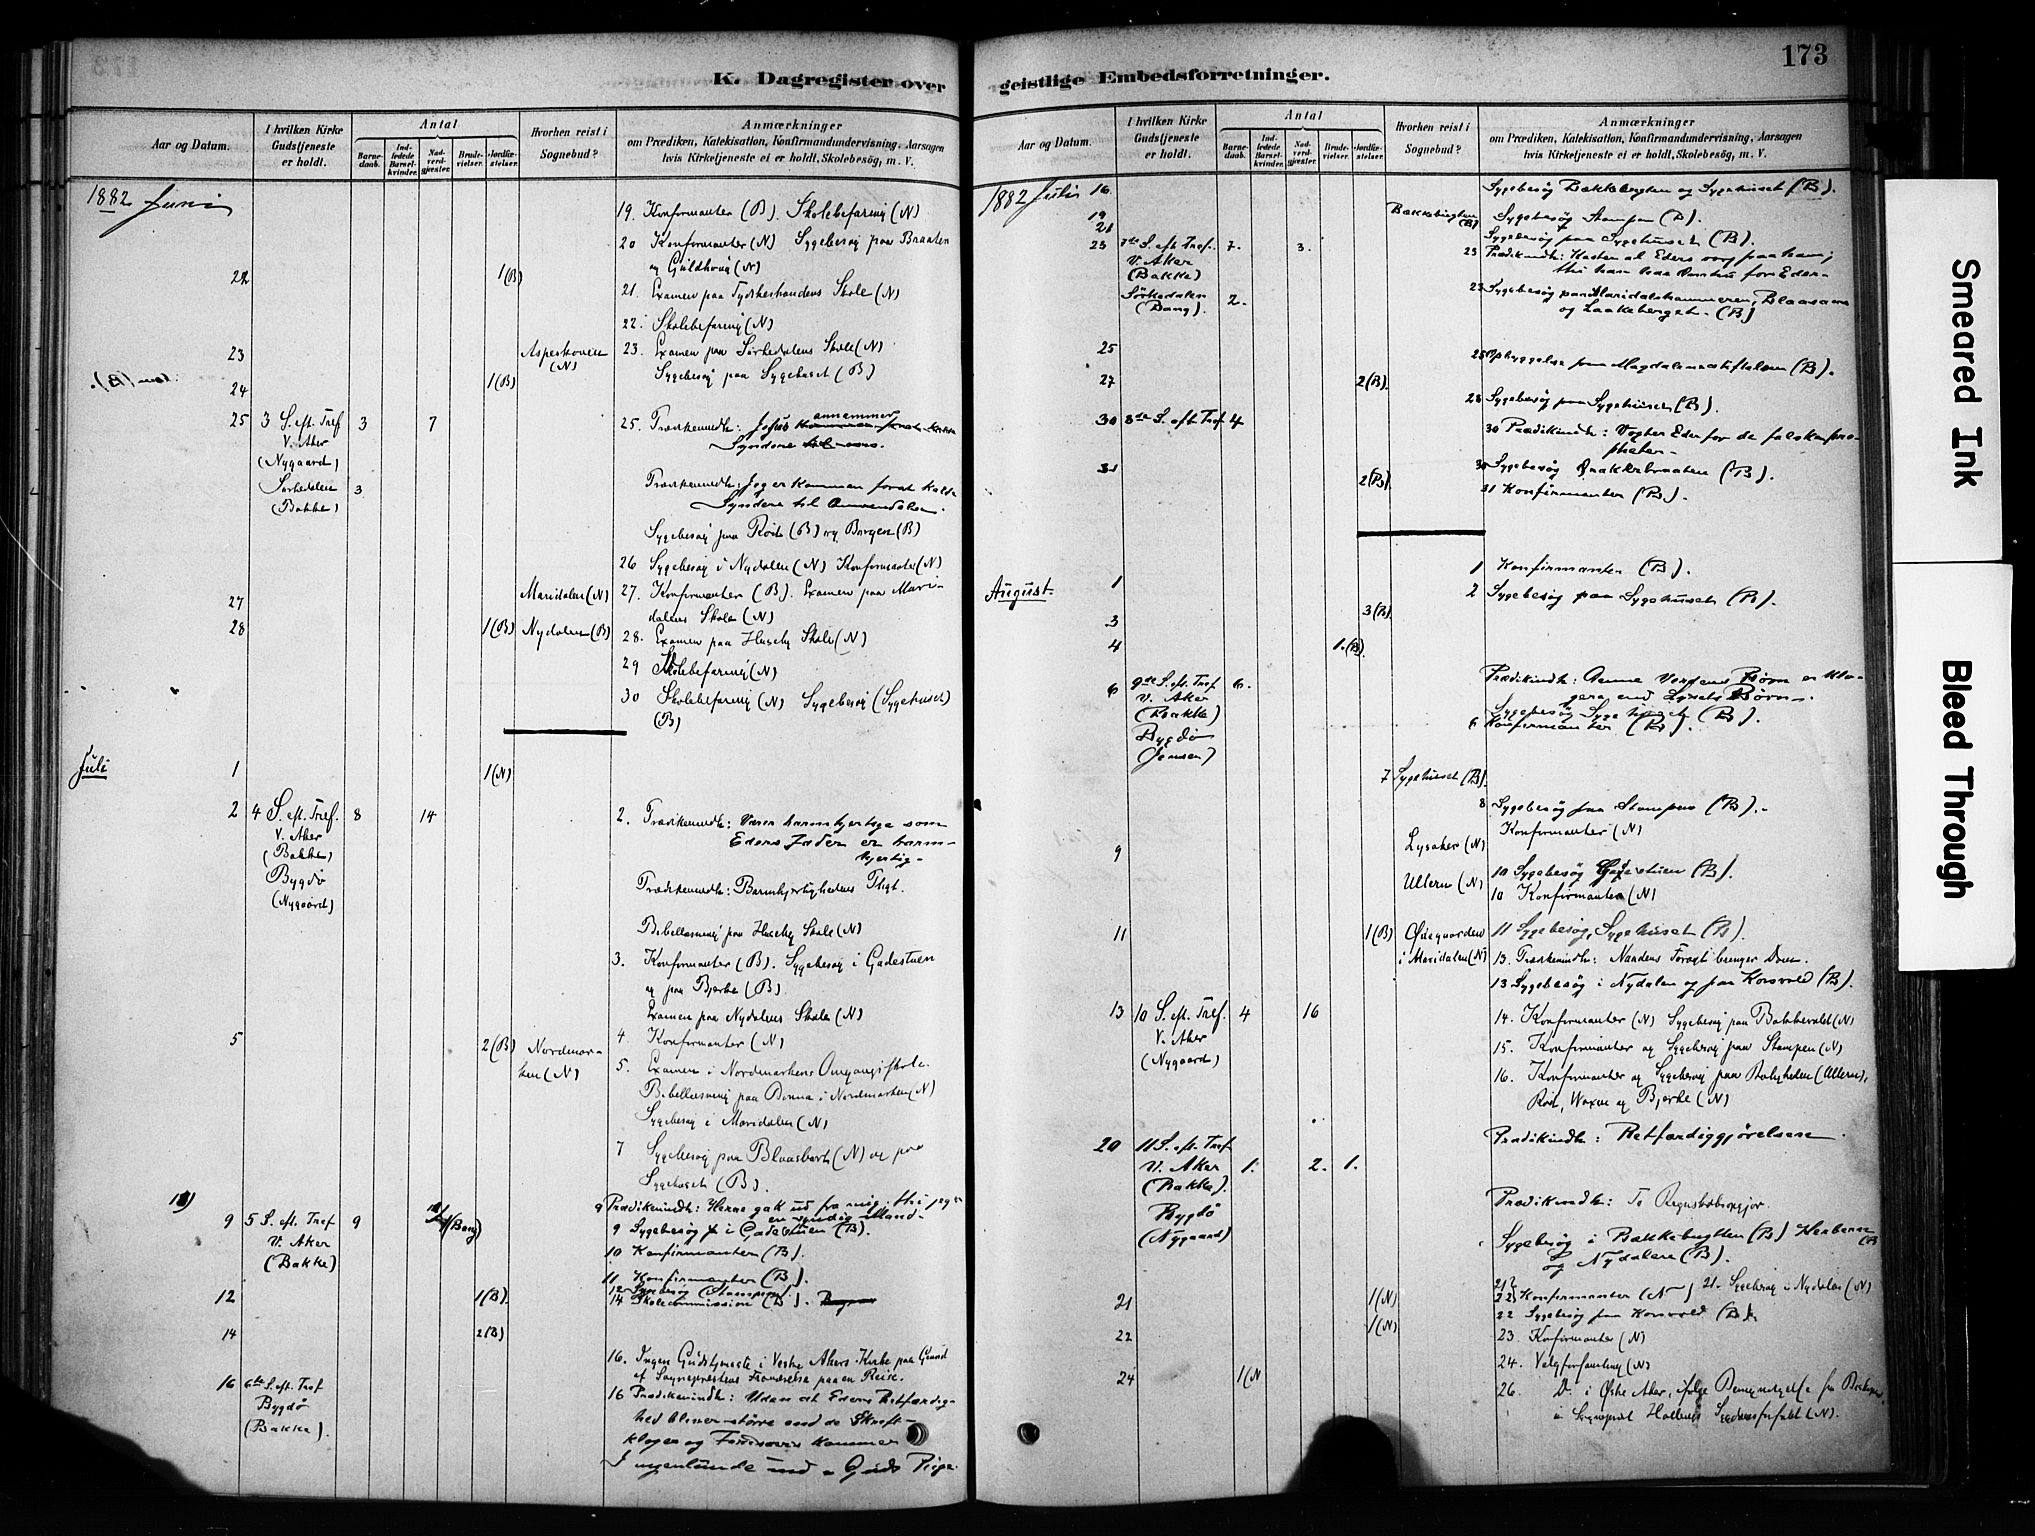 173
K. Dagregister over
geistlige Embedsforretninger.
Aar og Datum.
I hvilken Kirke Gudstjeneste er holdt.
Antal
Barnedaab.
Indledede Barselkvinder.
Nadverdgjæster.
Brudevielser.
Jordfæstelser.
Hvorhen reist i Sognebud?
Anmærkninger
om Prædiken, Katekisation, Konfirmandundervisning, Aarsagen
hvis Kirketjeneste ei er holdt, Skolebesög, m. V.
1882 Juni
19. Konfirmanter (B). Skolebefaring (N)
20 Konfirmanter (N) Sygebesøg paa Braaten
og Guldhoug (N)
22 1(B)
21. Examen paa Tydskestrandens Skole (N)
22. Skolebefaring (N)
23 Asperhoven (N)
23. Examen paa Sørkedalens Skole (N)
Sygebesøg paa Sygehuset (B)
24 1(B)
25 3 S. eft. Tref. 3 7
V. Aker
(Nygaard)
25. Prædikenindh: Jesus annammer
Syndere
Sørkedalen 3
(Bakke)
Prædikenindh: Jeg er kommen forat kalde
Syndere til Omvendelse.
Sygebesøg paa Røds (B) og Borgen (B)
26 Sygebesøg i Nydalen (N) Konfirmanter (N)
27 Maridalen (N)
27. Konfirmanter (B). Examen paa Mari-
dalens Skole (N)
28 1(B) Nydalen (B)
28. Examen paa Huseby Skole (N)
29 Skolebefaring (N)
30 Skolebefaring (N) Sygebesøg (Sygehuset)
(B)
Juli 1 1(N)
2 4 S. eft. Tref. 8 14
V. Aker
(Bakke)
Bygdø
(Nygaard)
2. Prædikenindh: Værer barmhjertige som
Eders Fader er barm-
hjertig.
Prædikenindh: Barmhjertighedens Pligt.
Bibellæsning paa Huseby Skole (N)
3. Konfirmanter (B). Sygebesøg i Gadestuen
og paa Bjerke (B)
Examen paa Nydalens Skole (N)
4 Konfirmanter (N)
5 2(B) Nordmar-
ken (N)
5. Examen i Nordmarkens Omgangsskole.
Bibellæsning paa Bonna i Nordmarken (N)
Sygebesøg i Maridalen (N)
7 Sygebesøg paa Blaasbort (N) og paa
Sygehuset (B).
9 5 S. eft. Tref 9 1(Bang)
V. Aker
(Bakke)
9 Prædikenindh: Herre gak ud fra mig, thi jeg er
en syndig Mand.
9 Sygebesøg i Gadestuen (B).
10 Konfirmanter (B).
11 Konfirmanter (B).
12 1(B)
12 Sygebesøg (Stampen).
14 Skolecommission (B).
14 2(B)
16. Ingen Gudstjeneste i Vestre Akers Kirke paa Grund
af Sognepræstens Fraværelse paa en Reise.
16 6te S. eft. Tref
Bygdø
(Bakke).
16 Prædikenindh: Uden at Eders Retfærdig-
hed bliver større end de Skrift-
kloges og Farisæers kommer
I ingenlunde ind i Guds Rige.
1882 Juli 16.
Sygebesøg Bakkebygten og Sygehuset (B).
19 Bakkebugten (B)
Sygebesøg Stampen (B).
21
Sygebesøg paa Sygehuset (B).
23 7de S. eft. Tref. 7. 3.
V. Aker
(Bakke)
23 Prædikindh: Kaster al Eders sorg paa ham,
thi han har Omhu for Eder.
Sørkedalen 2.
(Bang).
23 Sygebesøg paa Maridalshammeren, Blaasaas
og Laakeberget. (B)
25
25 Opbyggelse paa Magdalenastiftelsen (B).
27 2(B).
28 Sygebesøg paa Sygehuset (B).
30 8de S. eft Tref 4
30 Prædikindh: Vogter Eder for de falske pro-
pheter.
31 2(B)
30 Sygebesøg Brakkebraaten (B).
31 Konfirmanter (B).
August. 1
1 Konfirmanter (B).
2 Sygebesøg paa Sygehuset (B).
3 3(B).
4 1.(B)
6 9de S. eft. Tref 6.
V. Aker
(Bakke)
Bygdø
(Jensen)
Prædikindh: Denne Verdens Børn er klo-
gere end Lysets Børn.
Sygebesøg Sygehuset (B).
6 Konfirmanter (B).
7 Sygehuset (B).
8 Sygebesøg paa Stampen (B).
Konfirmanter (N)
9 Lysaker (N)
Ullern (N)
10 Sygebesøg Gadestuen (B).
10 Konfirmanter (N)
11 1(B) Ødegaarden
i Maridalen (N)
11 Sygebesøg, Sygehuset (B).
13. Prædikenindh: Naadens Foragt bringer Dom.
13 Sygebesøg i Nydalen og paa Korsvold (B).
13 10 S. eft. Tref. 4 16
V. Aker
(Nygaard)
14. Konfirmanter (N) Sygebesøg paa Bakkevold (N)
15. Konfirmanter og Sygebesøg paa Stampen (N)
16. Konfirmanter og Sygebesøg paa Roligheden (Ullern),
Røa, Voxen og Bjerke (N)
20 11 S. eft. Tref
V. Aker 1. 2. 1.
(Bakke).
Bygdø
(Nygaard)
Prædikindh: Retfærdiggjørelsen
Prædikindh: To Regnskabsopgjør.
Sygebesøg i Bakkebugten (B)
og Nydalen (B).
21 1(N)
21 22 Konfirmanter (N) 21. Sygebesøg i Nydalen (N)
22 Sygebesøg paa Korsvold (B).
22 1(N)
23. Konfirmanter (N)
24. Valgforsamling (N)
24 1(N
26. D. i Østre Aker, ifølge Bemyndigelse fra Biskopen
i Sognepræst Sygdomsforfald (N).
Smeared Ink
Bleed Through